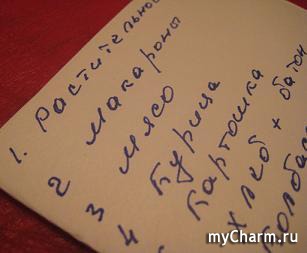 1. растительное
2 макароны
3 мясо
4 курица
картошка
хлеб + батон
колбас
myCharm.ru